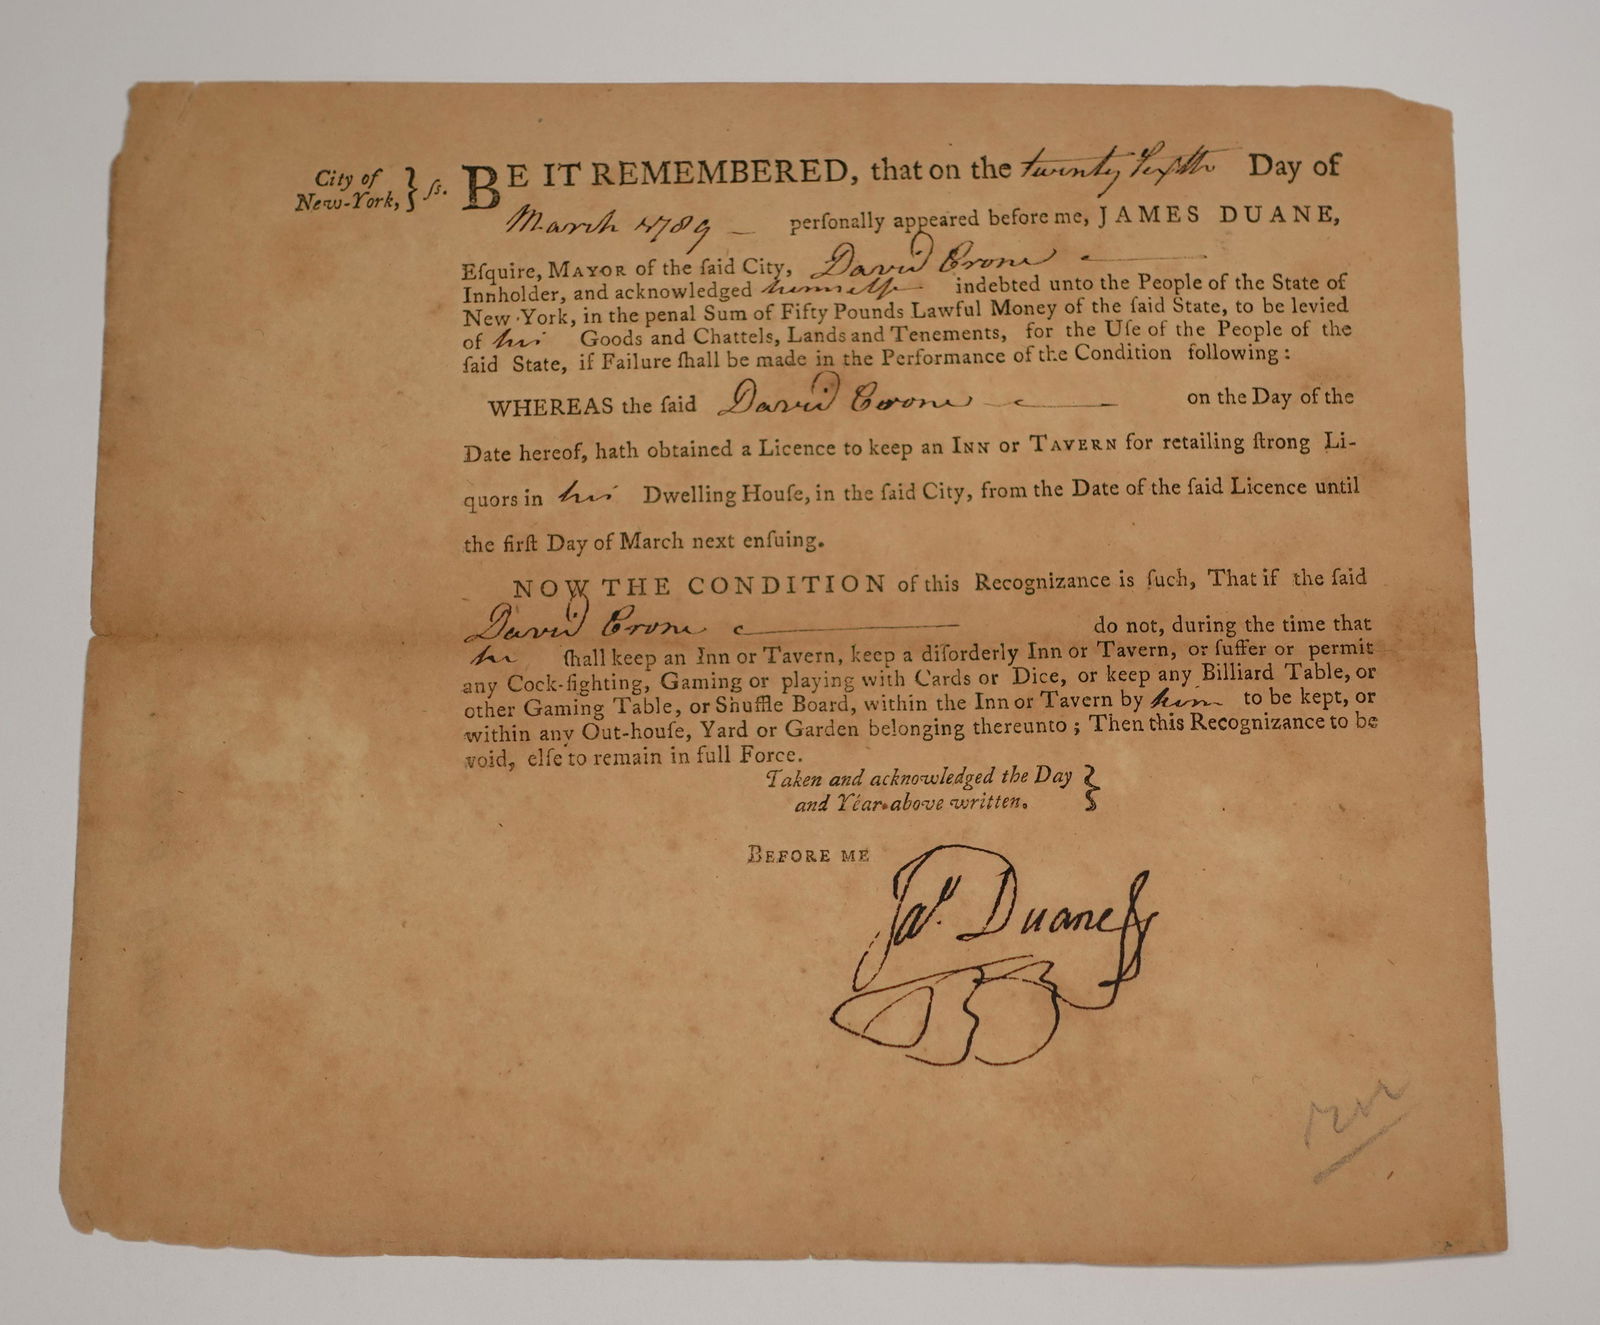 City of
New-York, } ſs.
BE IT REMEMBERED, that on the twenty Sixth Day of
March 1789 — perſonally appeared before me, JAMES DUANE,
Eſquire, MAYOR of the ſaid City, David Crone
Innholder, and acknowledged himself indebted unto the People of the State of
New-York, in the penal Sum of Fifty Pounds Lawful Money of the ſaid State, to be levied
of his Goods and Chattels, Lands and Tenements, for the Uſe of the People of the
ſaid State, if Failure ſhall be made in the Performance of the Condition following:
WHEREAS the ſaid David Crone on the Day of the
Date hereof, hath obtained a Licence to keep an INN or TAVERN for retailing ſtrong Li-
quors in his Dwelling Houſe, in the ſaid City, from the Date of the ſaid Licence until
the firſt Day of March next enſuing.
NOW THE CONDITION of this Recognizance is ſuch, That if the ſaid
David Crone do not, during the time that
he ſhall keep an Inn or Tavern, keep a diſorderly Inn or Tavern, or ſuffer or permit
any Cock-fighting, Gaming or playing with Cards or Dice, or keep any Billiard Table, or
other Gaming Table, or Shuffle Board, within the Inn or Tavern by him to be kept, or
within any Out-houſe, Yard or Garden belonging thereunto; Then this Recognizance to be
void, elſe to remain in full Force.
Taken and acknowledged the Day }
and Year above written.
BEFORE ME
Jaˢ. Duane